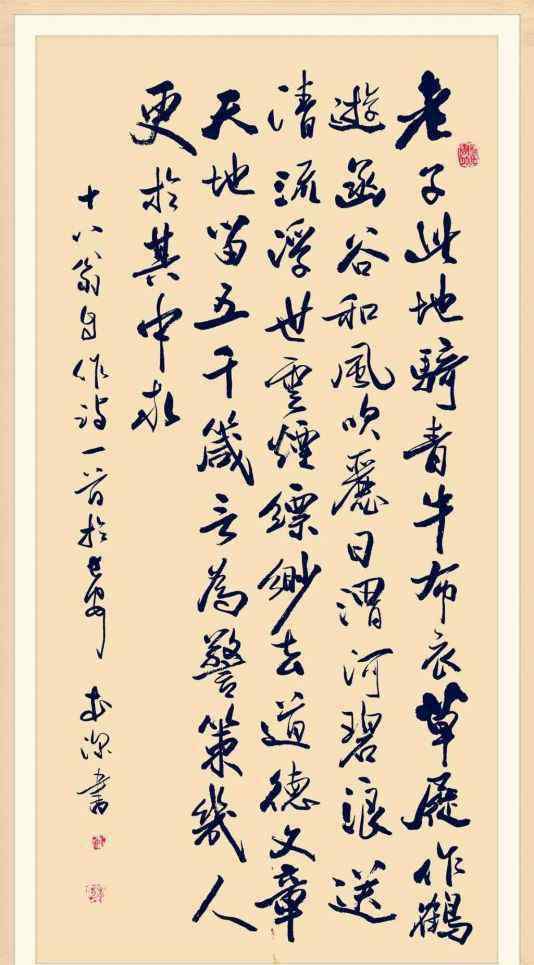 老子此地騎青牛布衣草履作鶴
遊函谷和風吹麗日渭河碧浪送
清流浮世雲煙縹緲去道德文章
天地留五千箴言為警策幾人
更於其中求
十八翁自作诗一首於長安 書